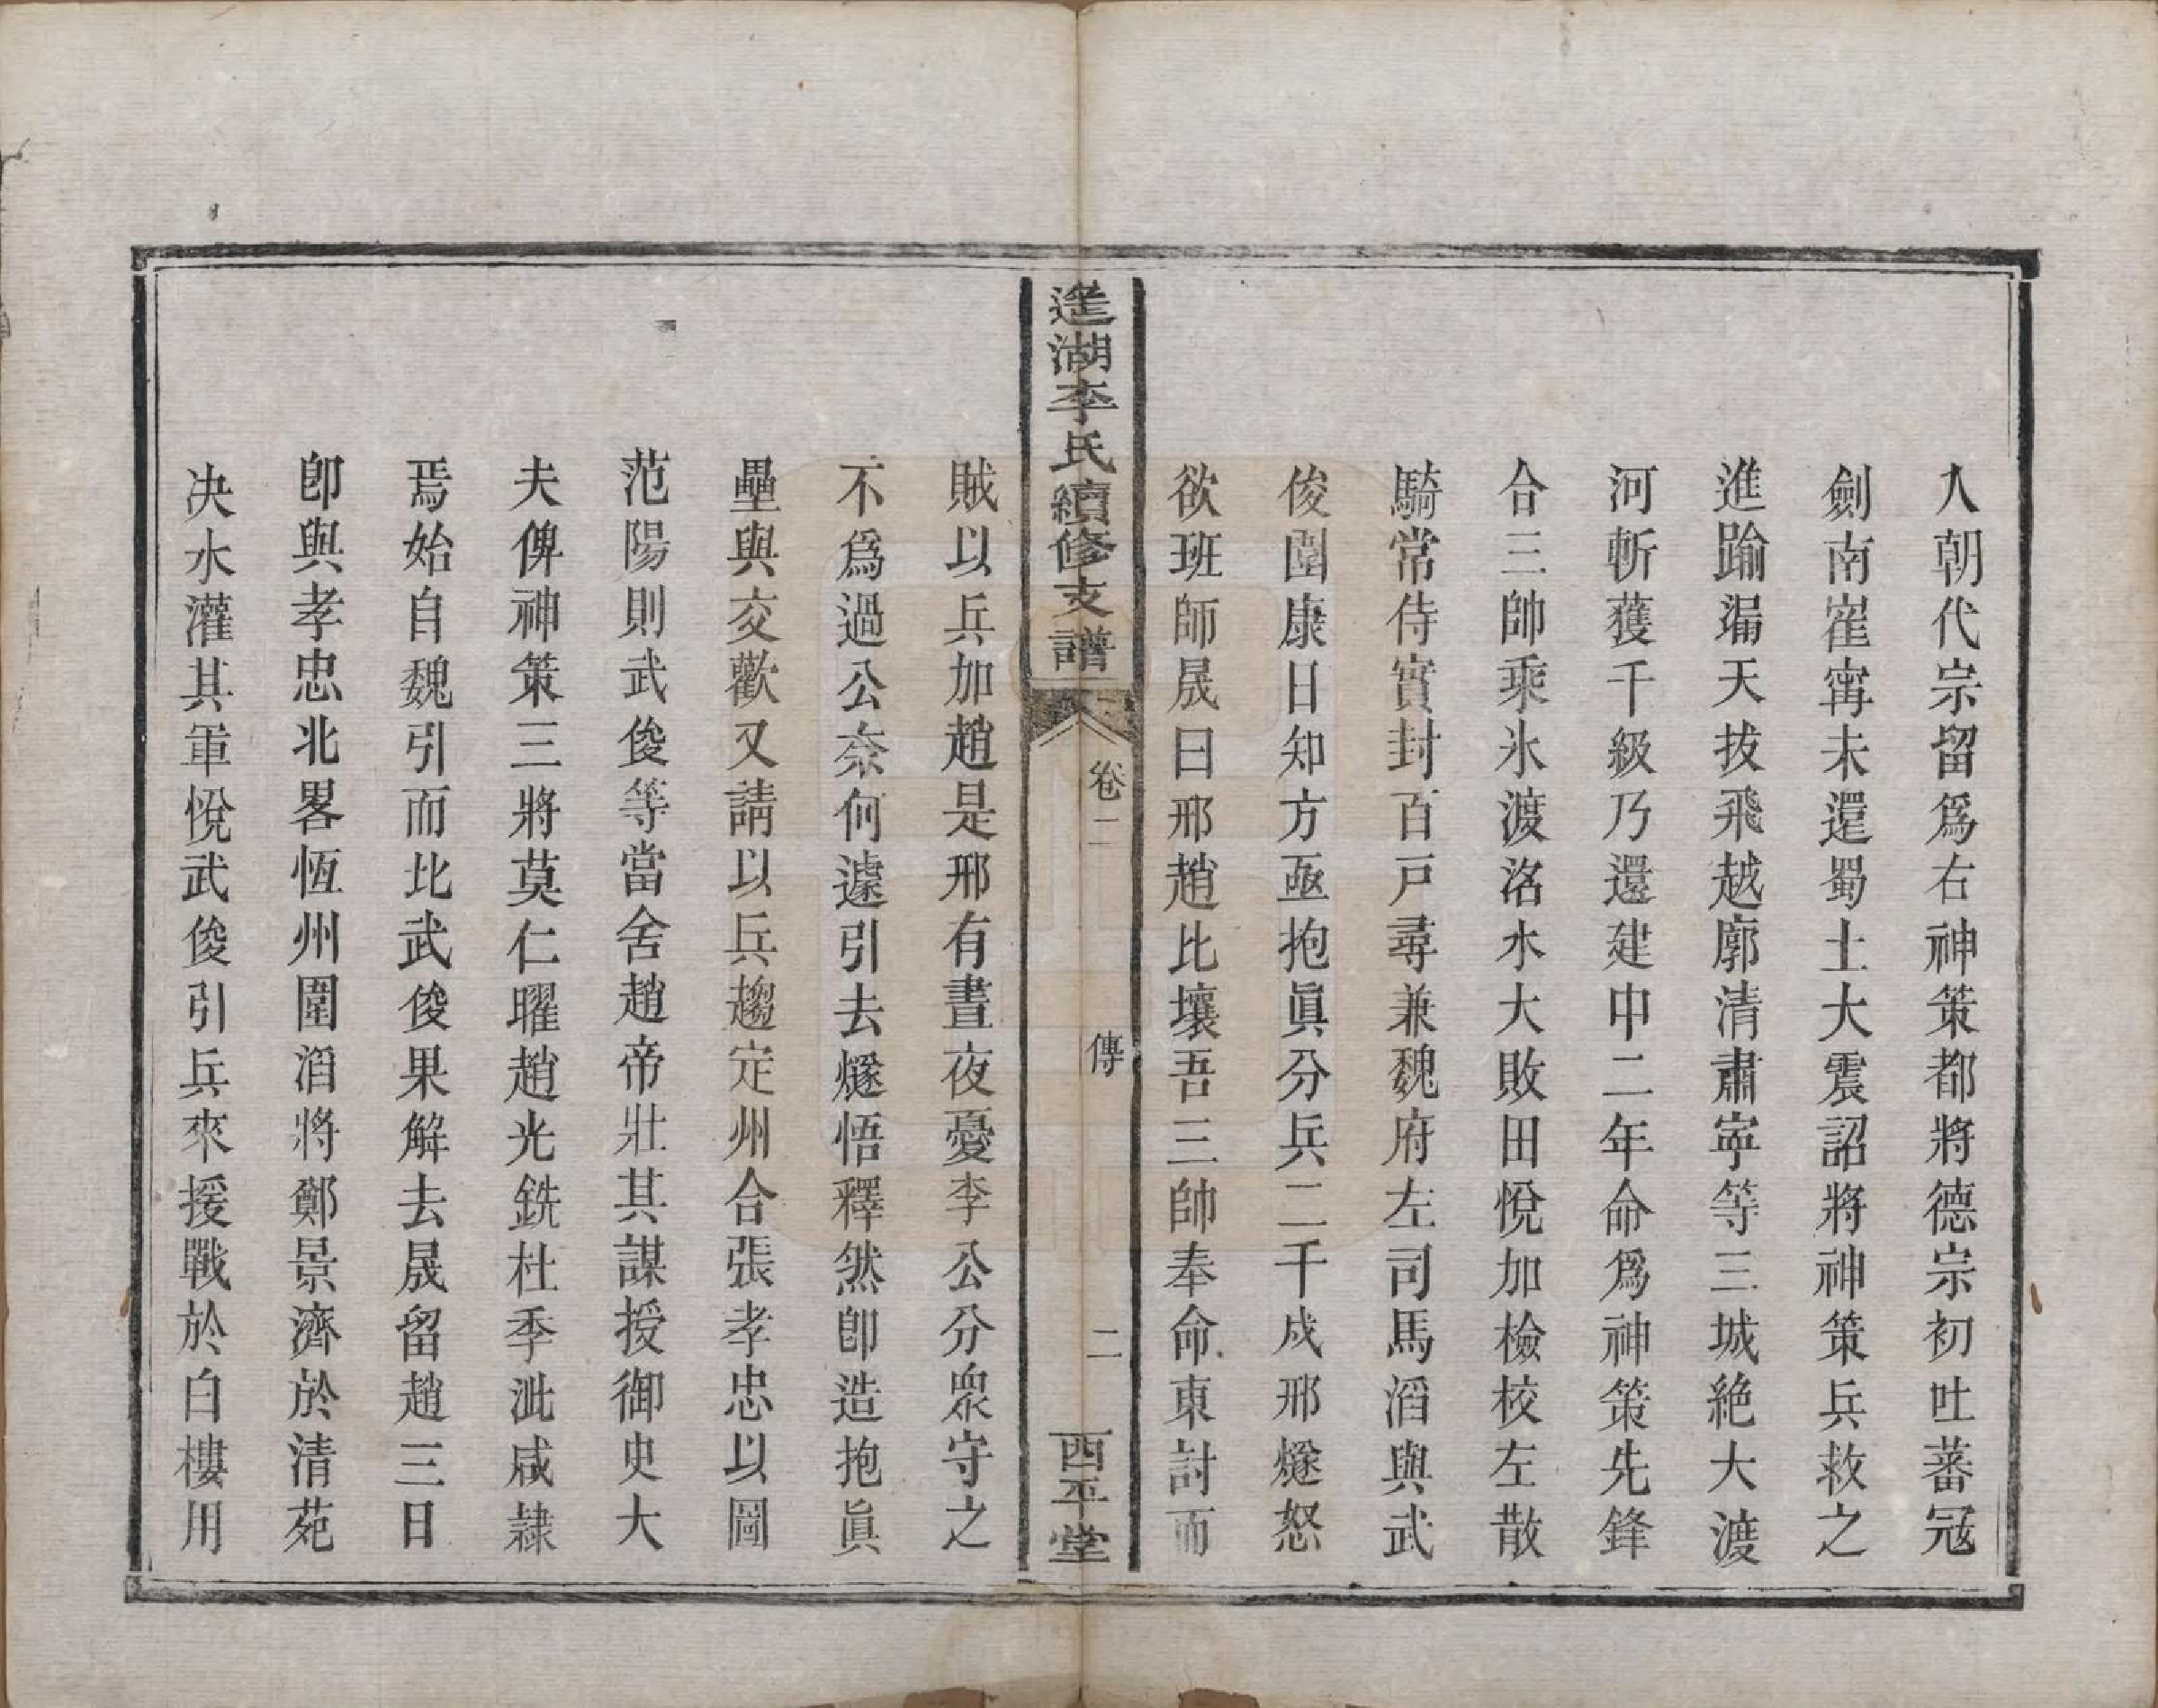 入朝代宗留爲右神策都將德宗初吐蕃冦
劍南崔寗未還蜀土大震詔將神策兵救之
進踰漏天拔飛越廓清肅寧等三城絶大渡
河斬獲千級乃還建中二年命爲神策先鋒
合三帥乘氷渡洺水大敗田悅加檢校左散
騎常侍實封百戸尋兼魏府左司馬滔與武
俊圍康日知方亟抱眞分兵二千戍邢燧怒
欲班師晟曰邢趙比壤吾三帥奉命東討而
進湖李氏續修支譜 卷二 傳 二 西平堂
賊以兵加趙是邢有晝夜憂李公分衆守之
不爲過公奈何遽引去燧悟釋然卽造抱眞
壘與交歡又請以兵趨定州合張孝忠以圖
范陽則武俊等當舍趙帝壯其謀授御史大
夫俾神策三將莫仁曜趙光銑杜季泚咸隷
焉始自魏引而北武俊果解去晟留趙三日
卽與孝忠北畧恆州圍滔將鄭景濟於清苑
决水灌其軍悅武俊引兵來援戰於白樓用